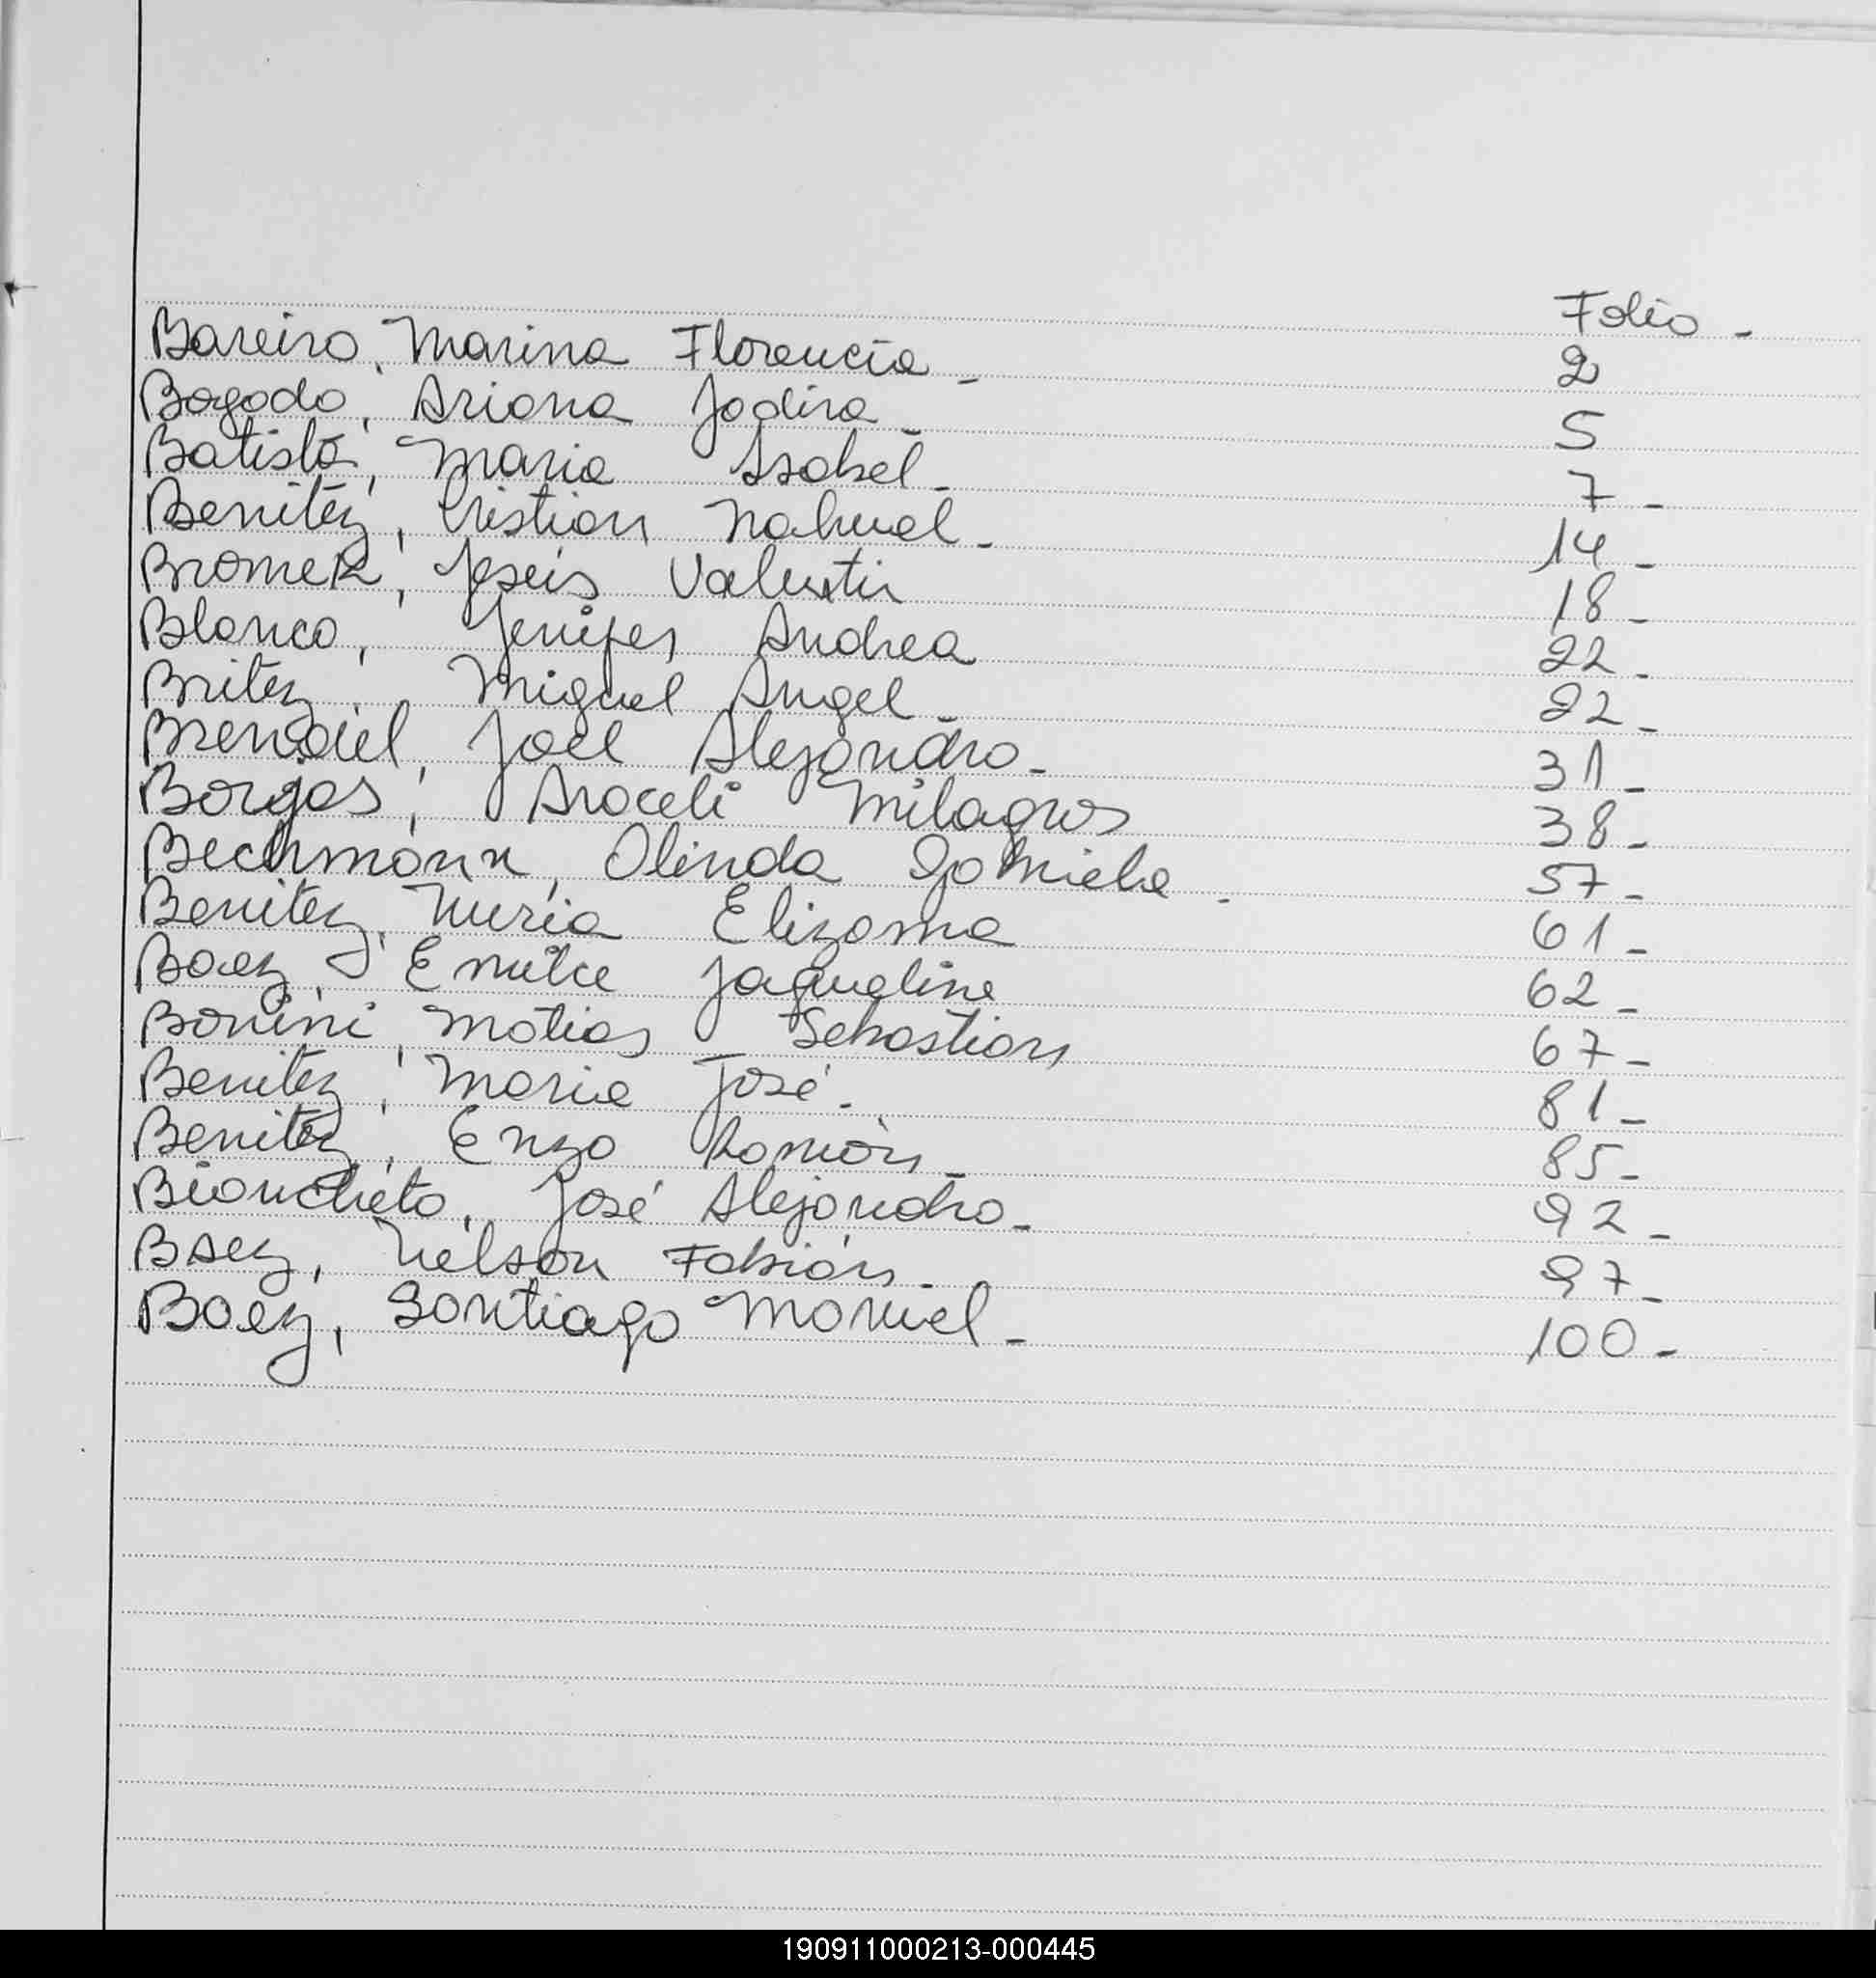 Folio -
Bareiro, Marina Florencia - 2
Bogado, Ariana Jadira - 5
Batista, Maria Isabel - 7 -
Benitez, Cristian Nahuel - 14 -
Bromek, Jesús Valentin 18 -
Blanco, Jenifer Andrea 22 -
Britez, Miguel Angel - 22 -
Brendel, Joel Alejandro - 31 -
Borjas, Araceli Milagros 38 -
Bechmann, Olinda Gabriela - 57 -
Benitez, Nuria Elizama 61 -
Baez, Emilce Jaqueline 62 -
Bonini, Matias Sebastian 67 -
Benitez, Maria José - 81 -
Benitez, Enzo Ramón - 85 -
Biancheto, José Alejandro - 92 -
Baez, Nelson Fabián - 97 -
Baez, Santiago Manuel - 100 -
190911000213-000445